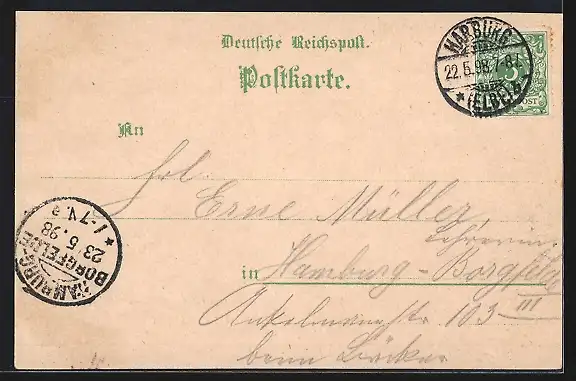 Deutsche Reichspost.
Postkarte.
HARBURG
22.5.98
* (ELBE) b
5
POST
An
Frl. Erne Müller,
Lehrerin
in Hamburg-Borgfelde
Ankelmannstr 103 III
beim Bäcker
HAMBURG-
BORGFELDE
23 5.98
* 1-7V.